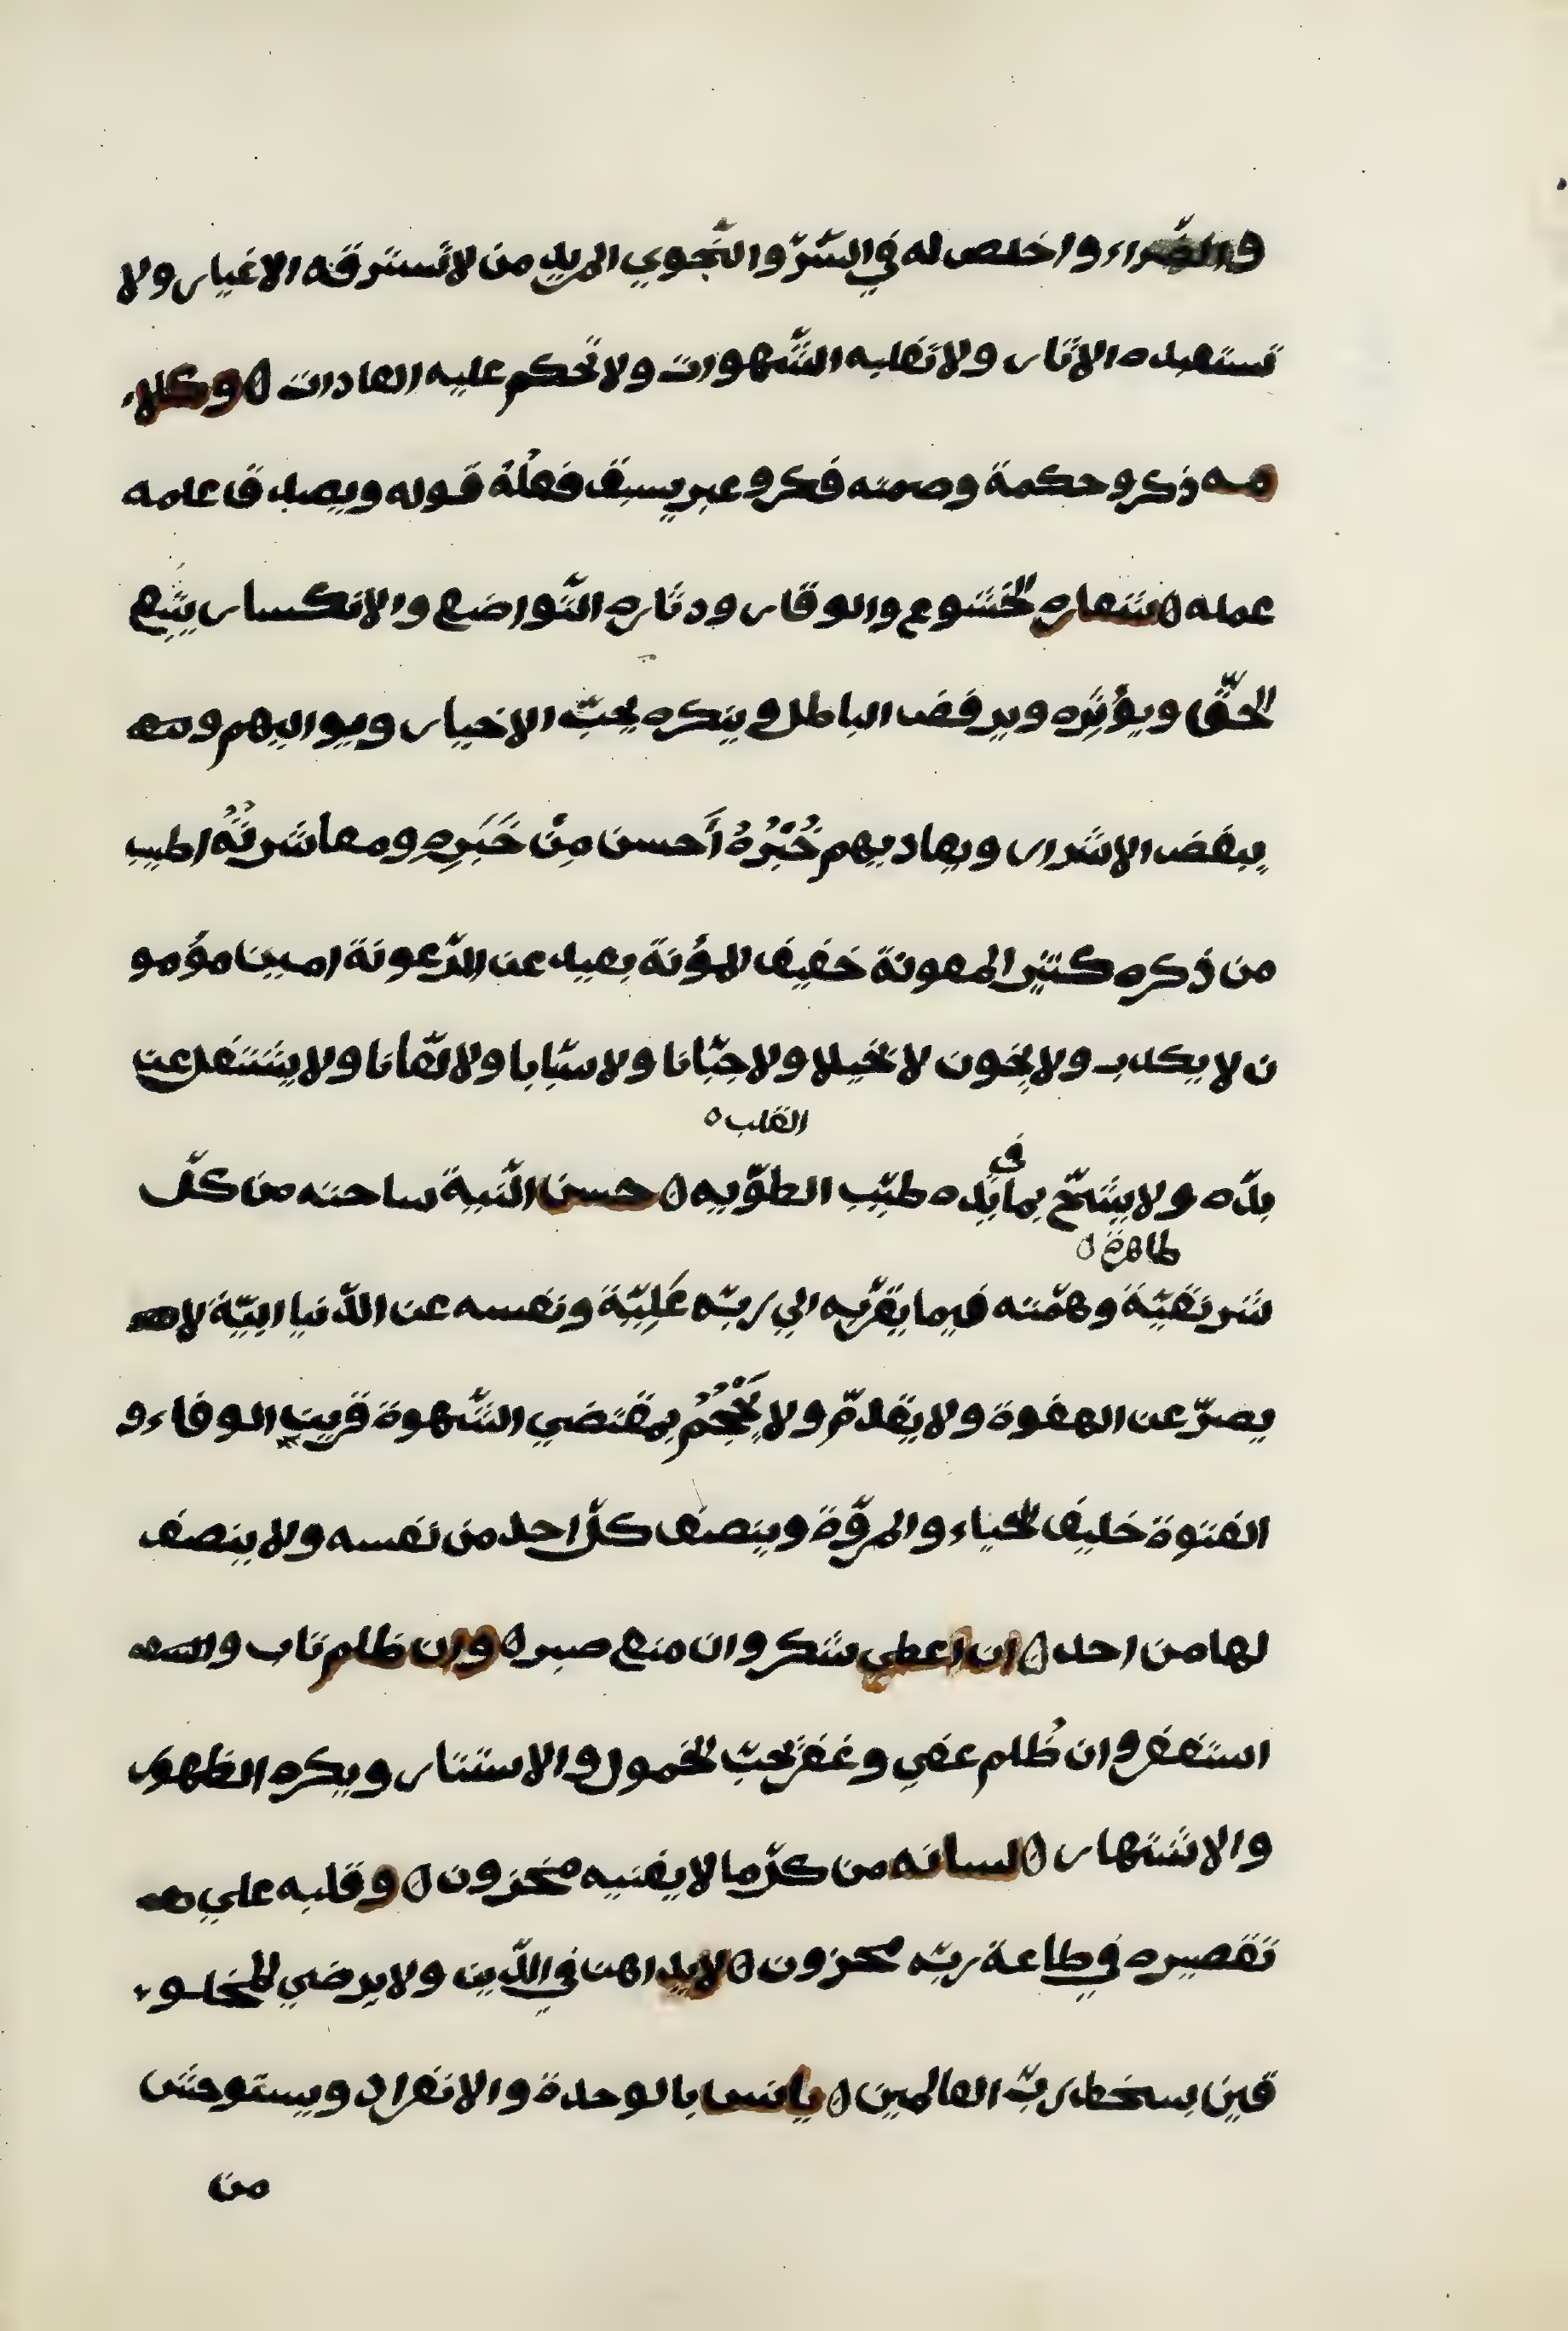 والضّراء واخلص له في السّرّ والنّجوي المريد من لا تسترقه الاغيار ولا
تستعبده الاثار ولا تغلبه الشّهوات ولا تحكم عليه العادات ٥ وكلا
مه ذكر وحكمة وصمته فكر وعبر يسبق فعلُهُ قوله ويصدق علمه
عمله ٥ شعاره الخشوع والوقار ودثاره التّواضع والانكسار يتبع
الحقّ ويؤثِره ويرفض الباطل وينكره يحبّ الاخيار ويواليهم و
يبغض الاشرار ويعاديهم خُبْرُهُ أَحسن مِنْ خَبَرِهِ ومعاشرتُهُ اطيب
من ذكره كثير المعونة خفيف المؤنة بعيد عن الرّعونة امينا مؤمو
ن لا يكدب ولا يخون لا بخيلا ولا جبّانا ولا سبّابا ولا لعّانا ولا يشتغل عن
القلب ٥
بدّه ولا يشحّ بما في يده طيّب الطوّيه ٥ حسن النّية ساحته من كلّ
طاهرة ٥
شر نقيّة وهمّته فيما يقرّبه الي ربّه عَلِيّة ونفسه عن الدّنيا ابيّة لا
يصرّ عن الهفوة ولا يقدمّ ولا يَحْجُمُ بمقتضي الشّهوة قرين الوفاء و
الفتوة خليف الحياء والمروّة وينصف كلّ احد من نفسه ولا ينصف
لها من احد ٥ ان اعطي شكر وان منع صبر ٥ وان ظلم تاب و
استغفر وان ظُلم عفي وغفر يحبّ الخمول والاستتار ويكره الظهور
والاشتهار ٥ لسانه من كلّ ما لا يعنيه مخزون ٥ وقلبه علي
تقصيره في طاعة ربّه محزون ٥ لا يداهن في الدّين ولا يرضي المخلو
قين بسخط ربّ العالمين ٥ يانس بالوحدة والانفراد ويستوحش
من